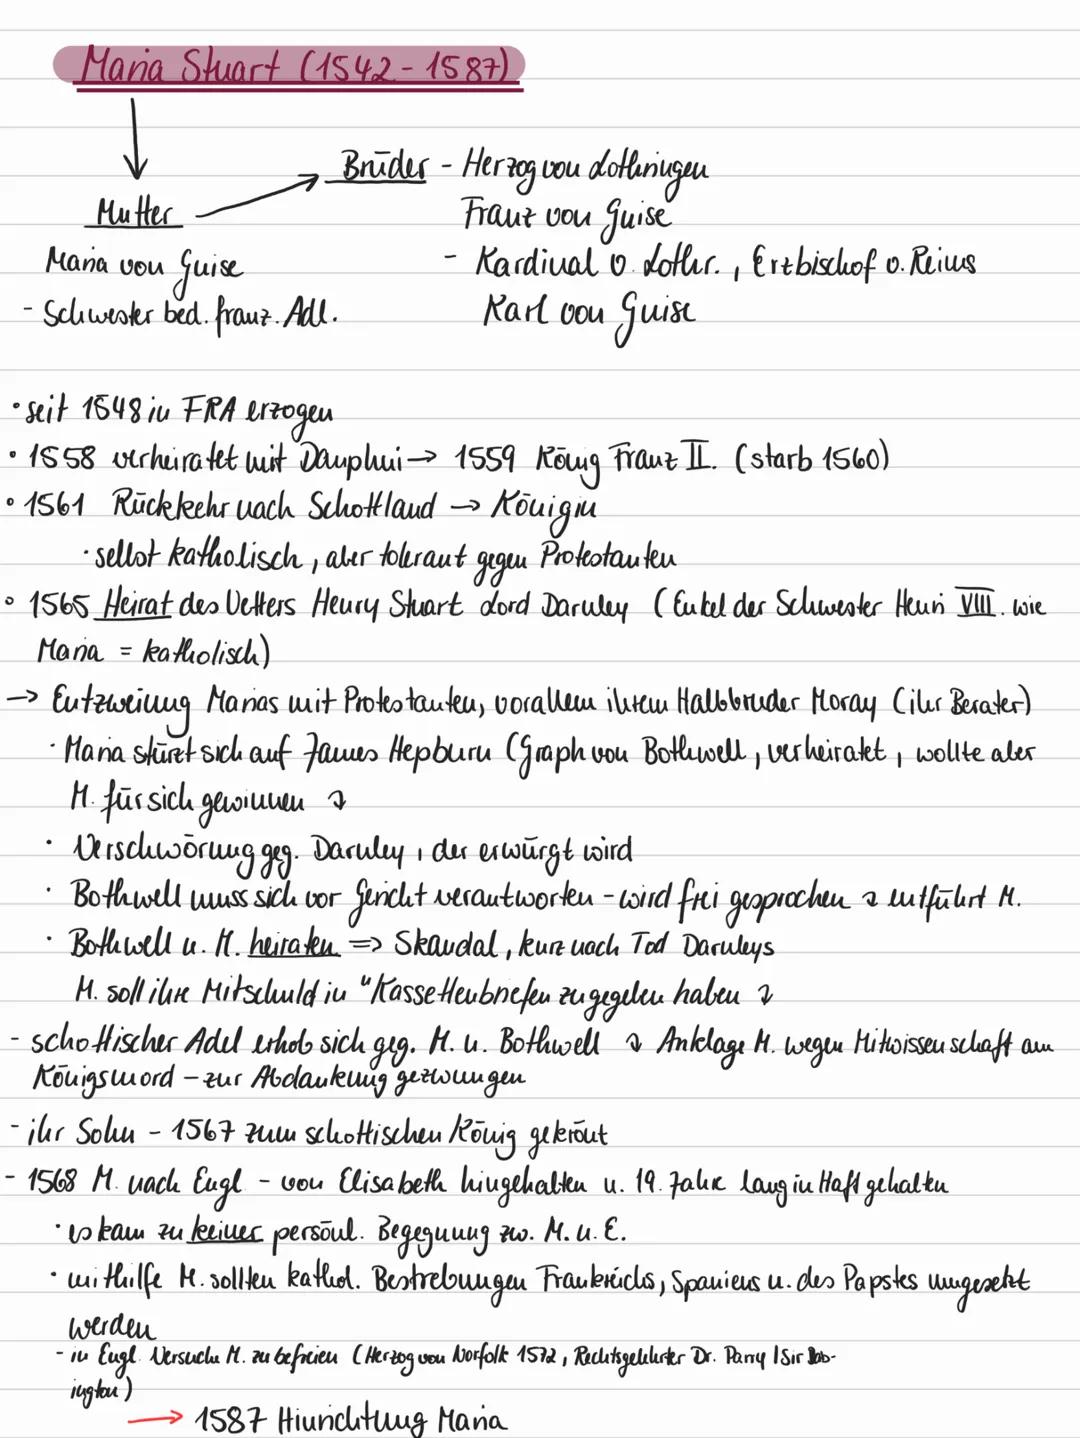 Maria Stuart (1542 - 1587)
Brüder - Herzog von Lothringen
Mutter
Franz von Guise
Maria von Guise
- Kardinal v. Lothr., Erzbischof v. Reims
- Schwester bed. franz. Adl.
Karl von Guise
• seit 1548 in FRA erzogen
• 1558 verheiratet mit Dauphin → 1559 König Franz II. (starb 1560)
• 1561 Rückkehr nach Schottland → Königin
• selbst katholisch, aber tolerant gegen Protestanten
• 1565 Heirat des Vetters Henry Stuart Lord Darnley (Enkel der Schwester Henri VIII. wie
Maria = katholisch)
→ Entzweiung Marias mit Protestanten, vorallem ihrem Halbbruder Moray (ihr Berater)
• Maria stürzt sich auf James Hepburn (Graph von Bothwell, verheiratet, wollte aber
M. für sich gewinnen ↴
• Verschwörung geg. Darnley, der erwürgt wird
• Bothwell muss sich vor Gericht verantworten - wird frei gesprochen ↴ entführt M.
• Bothwell u. M. heiraten => Skandal, kurz nach Tod Darnleys
M. soll ihre Mitschuld in "Kassettenbriefen zugegeben haben ↴
- schottischer Adel erhob sich geg. M. u. Bothwell ↴ Anklage M. wegen Mitwissenschaft am
Königsmord - zur Abdankung gezwungen
- ihr Sohn - 1567 zum schottischen König gekrönt
- 1568 M. nach Engl - von Elisabeth hingehalten u. 19. Jahre lang in Haft gehalten
• es kam zu keiner persönl. Begegnung zw. M. u. E.
• mithilfe M. sollten kathol. Bestrebungen Frankreichs, Spaniens u. des Papstes umgesetzt
werden
- in Engl. Versuche M. zu befreien (Herzog von Norfolk 1572, Rechtsgelehrter Dr. Parry | Sir Bab-
ington)
→ 1587 Hinrichtung Maria